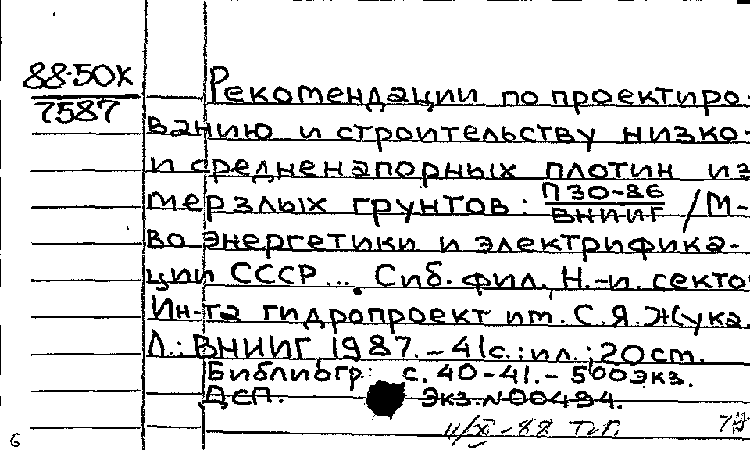 88-50К
7587
Рекомендации по проектиро-
ванию и строительству низко-
и средненапорных плотин из
мерзлых грунтов: П 30-86
ВНИИГ /М-
во энергетики и электрифика-
ции СССР ... Сиб. фил. Н.-и. секто
Ин-та гидропроект им. С.Я.Жука.
Л.: ВНИИГ, 1987. - 41с.: ил.; 20 см.
Библиогр: с. 40-41. - 500 экз.
ДСП. Экз. N 00494.
11/XI-88
6